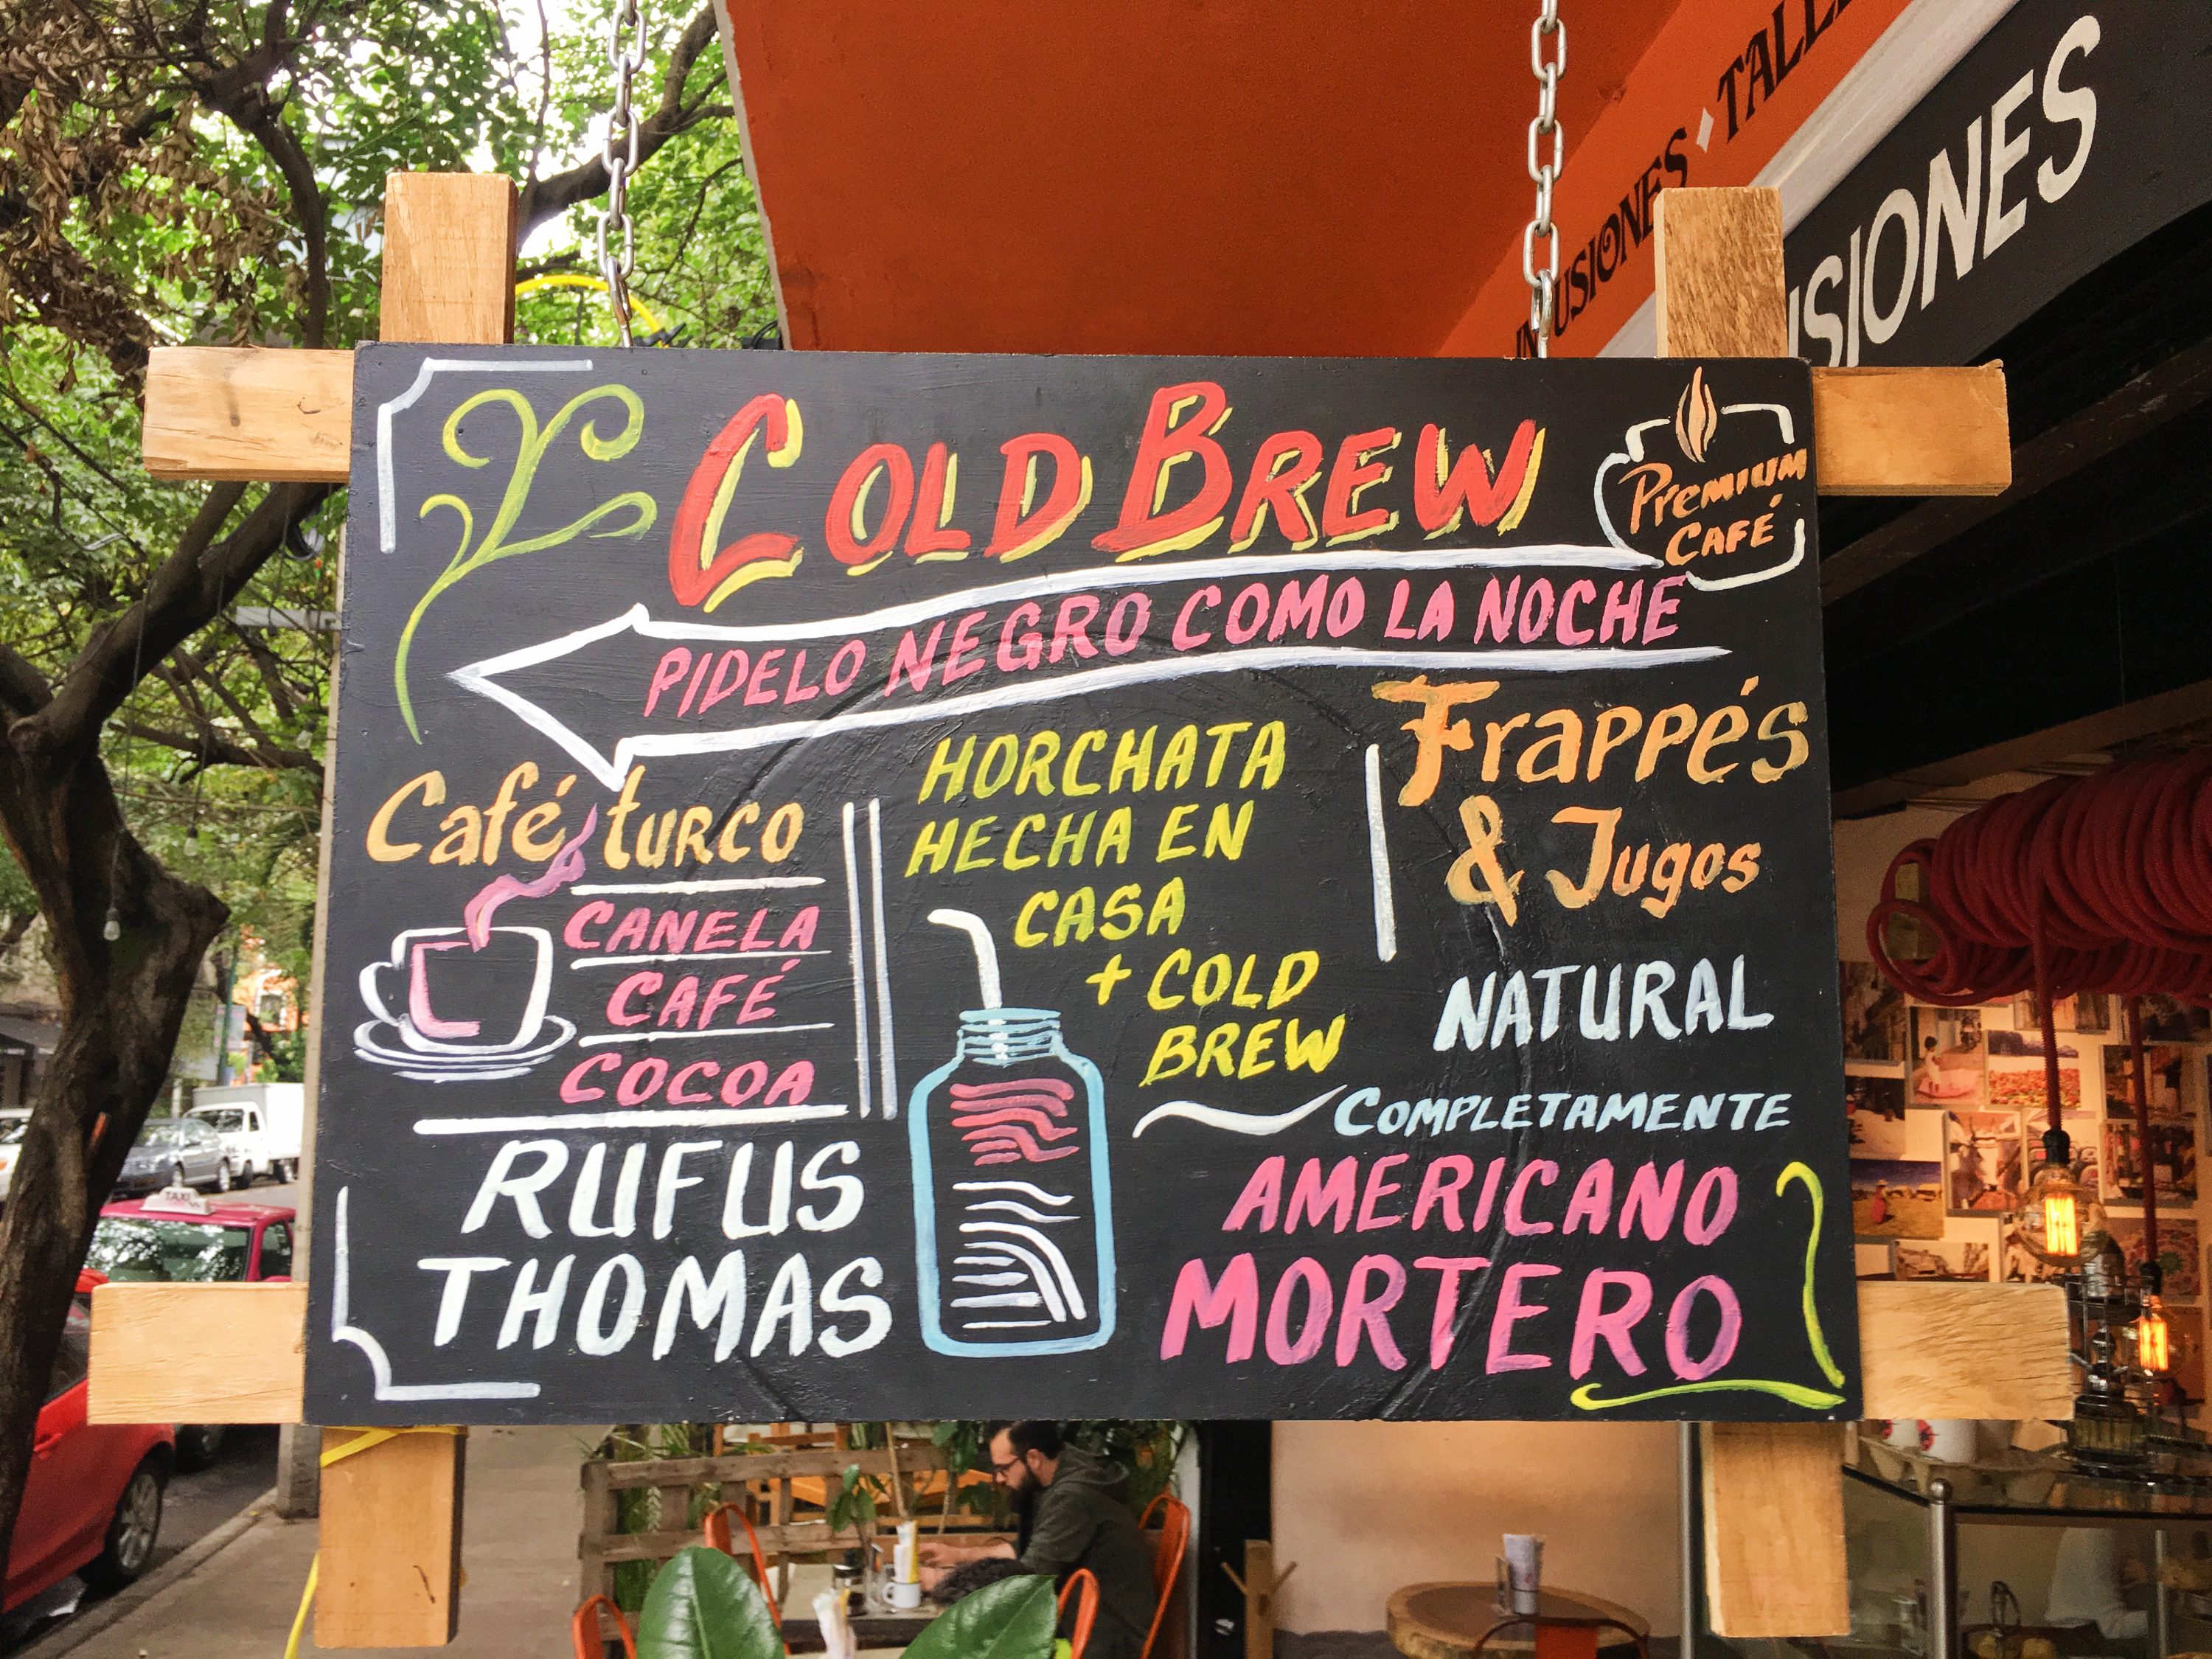 INFUSIONES · TALLE
USIONES
COLD BREW
PREMIUM
CAFÉ
PIDELO NEGRO COMO LA NOCHE
Café turco
CANELA
CAFÉ
COCOA
RUFUS
THOMAS
HORCHATA
HECHA EN
CASA
+ COLD
BREW
Frappés
& Jugos
NATURAL
COMPLETAMENTE
AMERICANO
MORTERO
TAXI